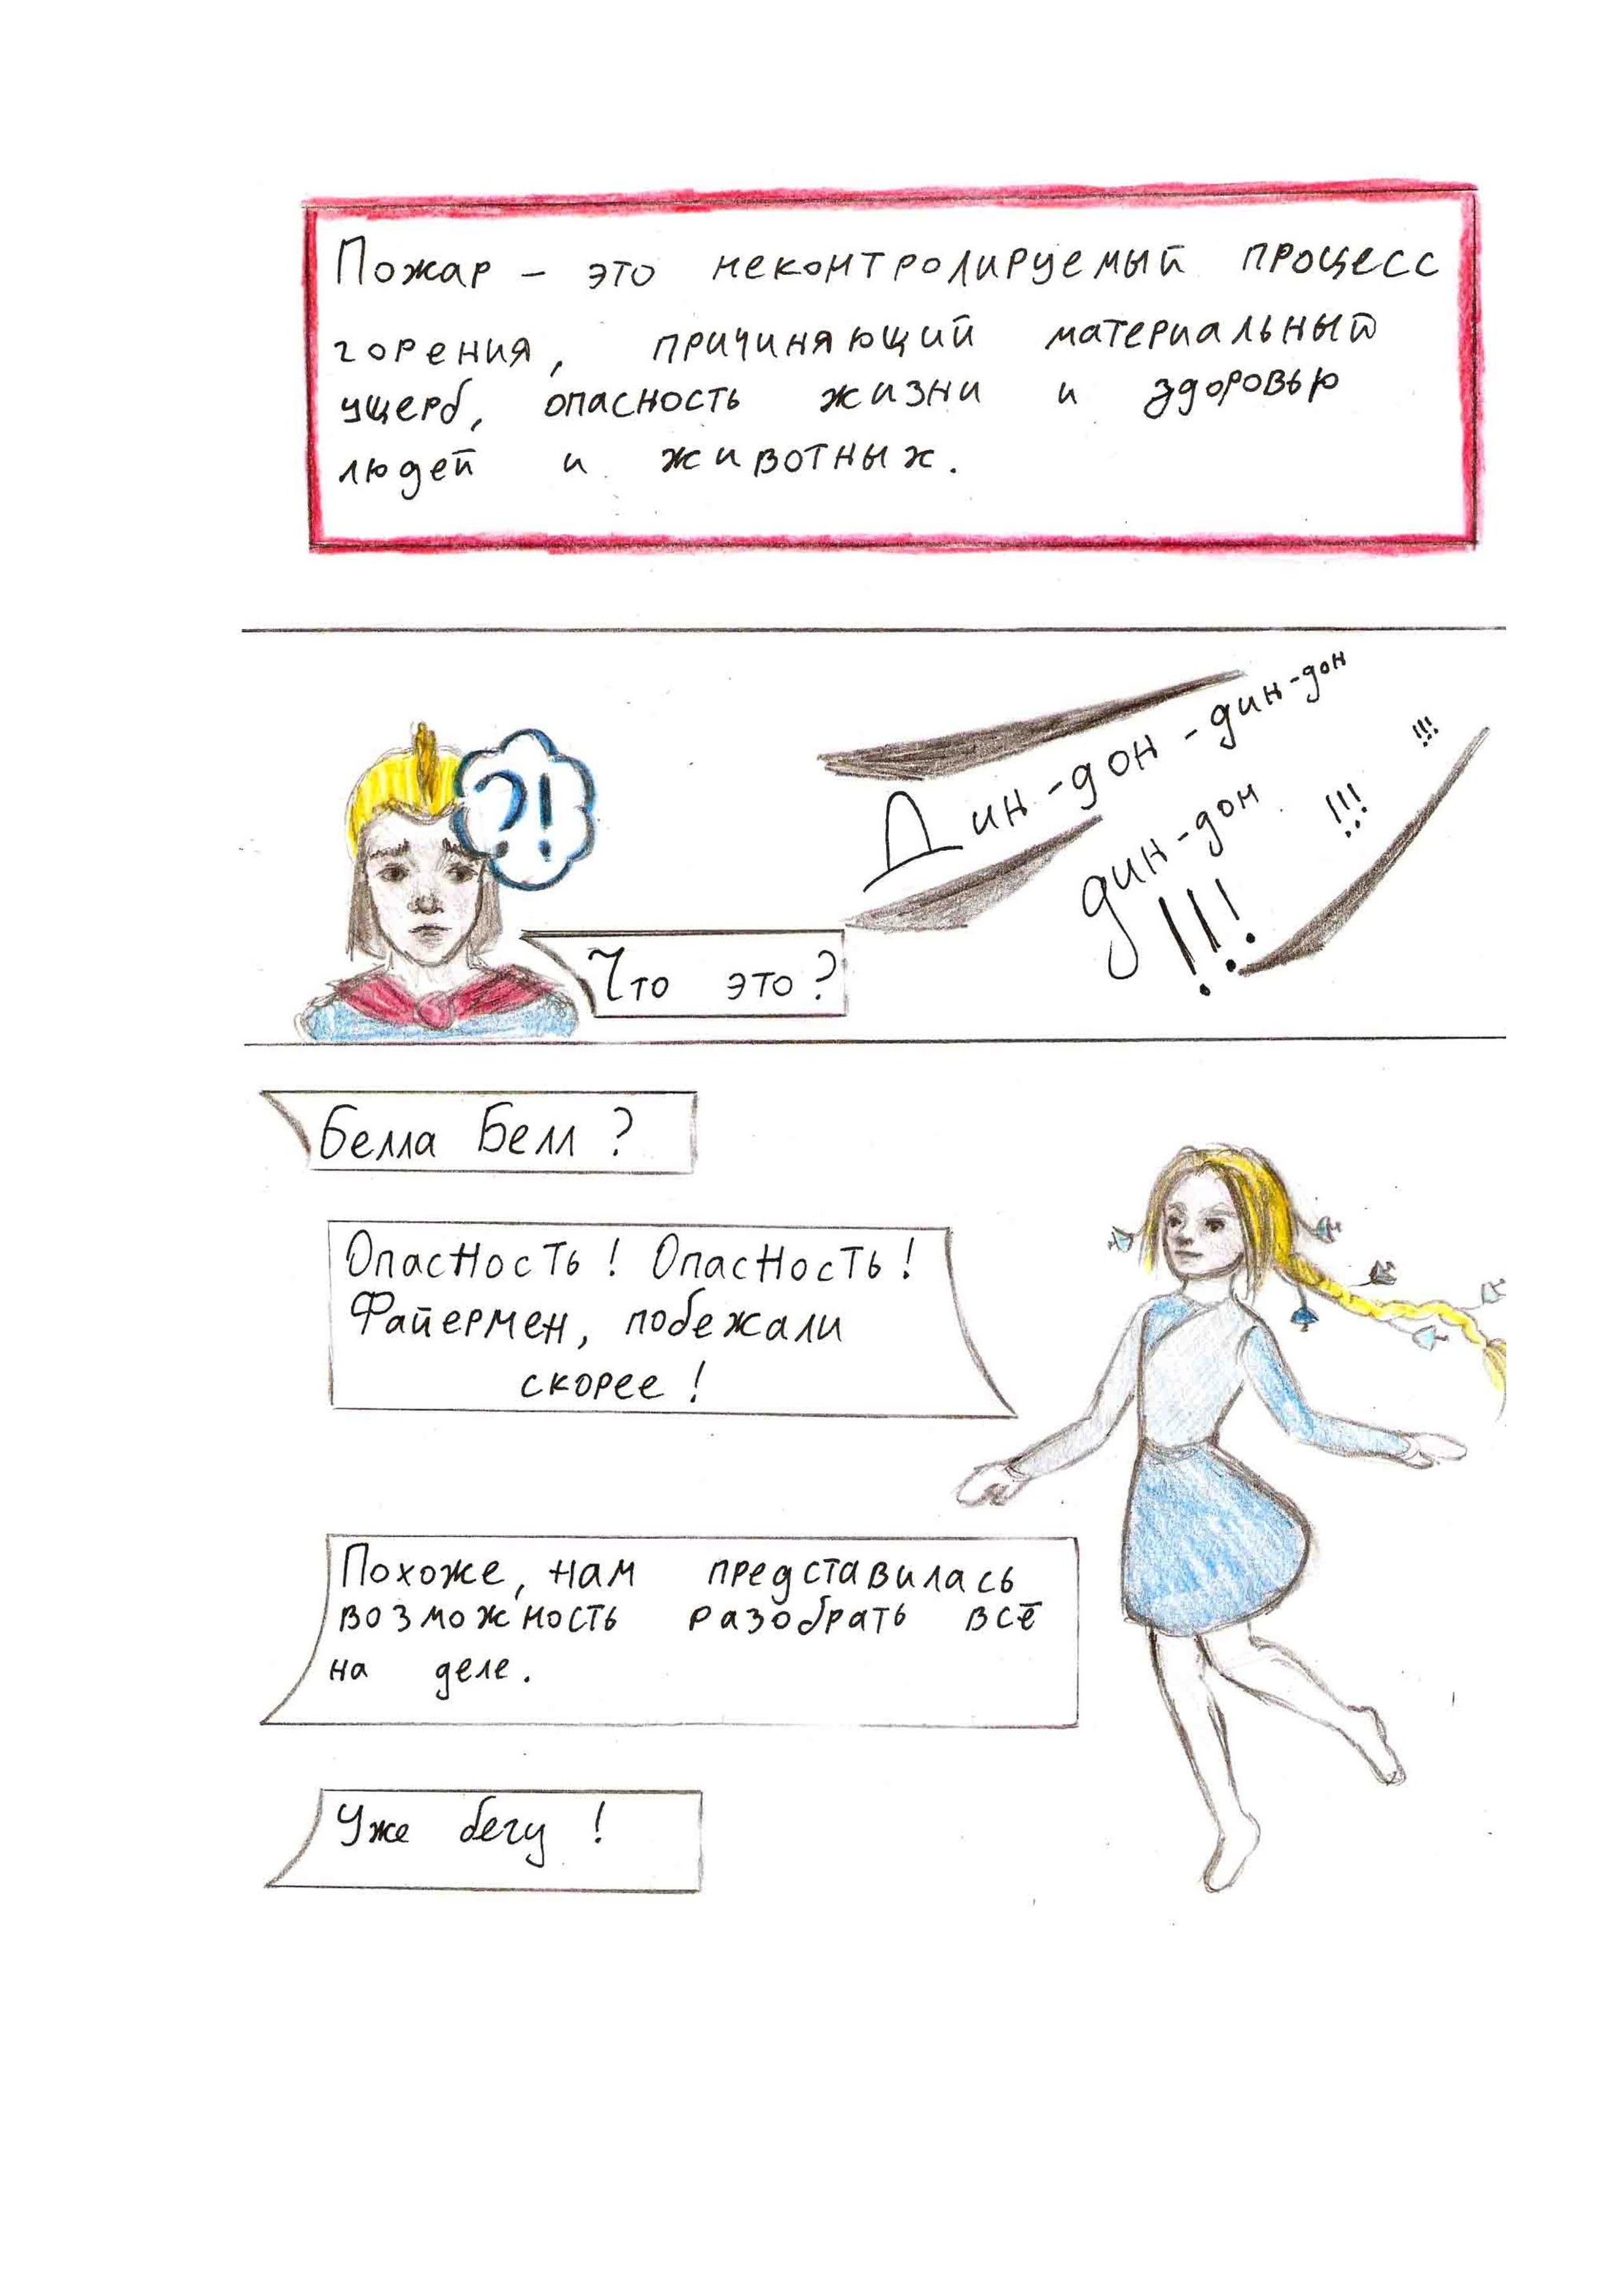 Пожар – это неконтролируемый процесс
горения, причиняющий материальный
ущерб, опасность жизни и здоровью
людей и животных.
?!
Дин-дон-дин-дон
дин-дон
!!!
!!!
!!!
Что это?
Белла Белл ?
Опасность! Опасность!
Файермен, побежали
скорее!
Похоже, нам представилась
возможность разобрать всё
на деле.
Уже бегу!